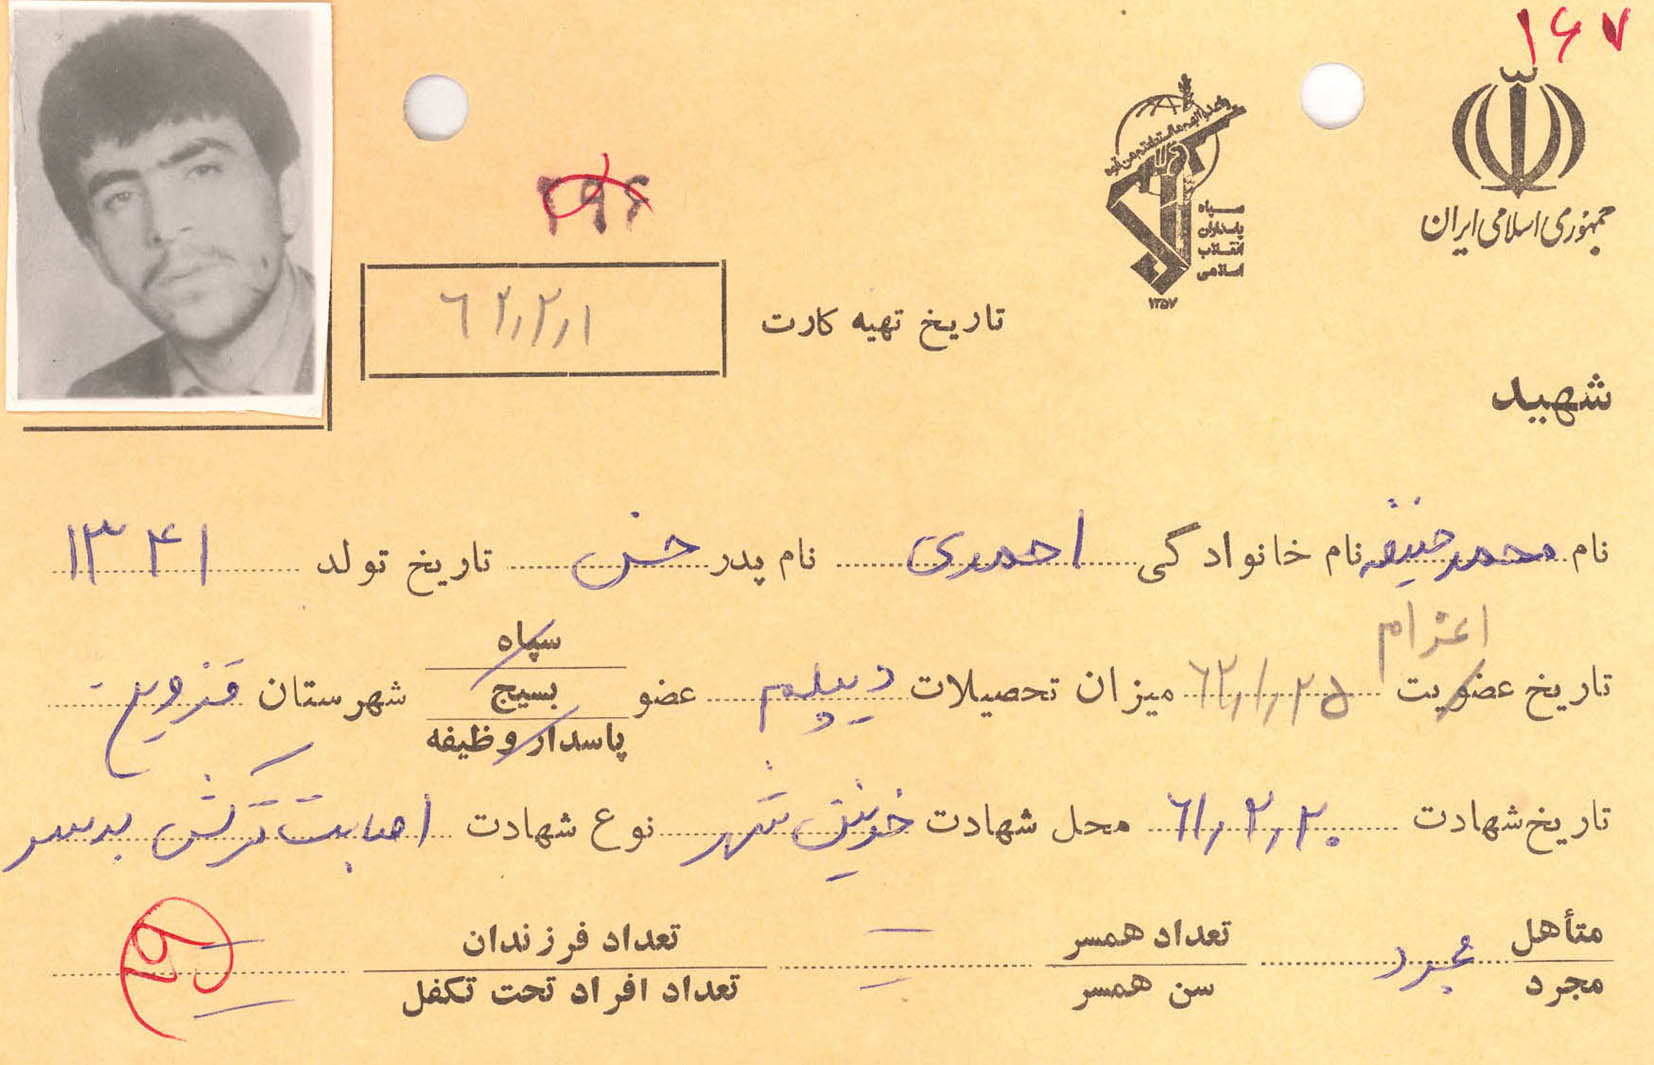 ۱۶۷
جمهوری اسلامی ایران
سپاه
پاسداران
انقلاب
اسلامی
۱۳۵۷
۲۹۶
تاریخ تهیه کارت ۶۲,۲,۱
شهید
نام محمد حنیفه نام خانوادگی احمدی نام پدر حسن تاریخ تولد ۱۳۴۱
اعزام
تاریخ عضویت ۶۲,۱,۲۵ میزان تحصیلات دیپلم عضو سپاه بسیج پاسدار وظیفه شهرستان قزوین
تاریخ شهادت ۶۱,۲,۲۰ محل شهادت خونین شهر نوع شهادت اصابت ترکش بسر
متأهل مجرد مجرد تعداد همسر سن همسر تعداد فرزندان تعداد افراد تحت تکفل